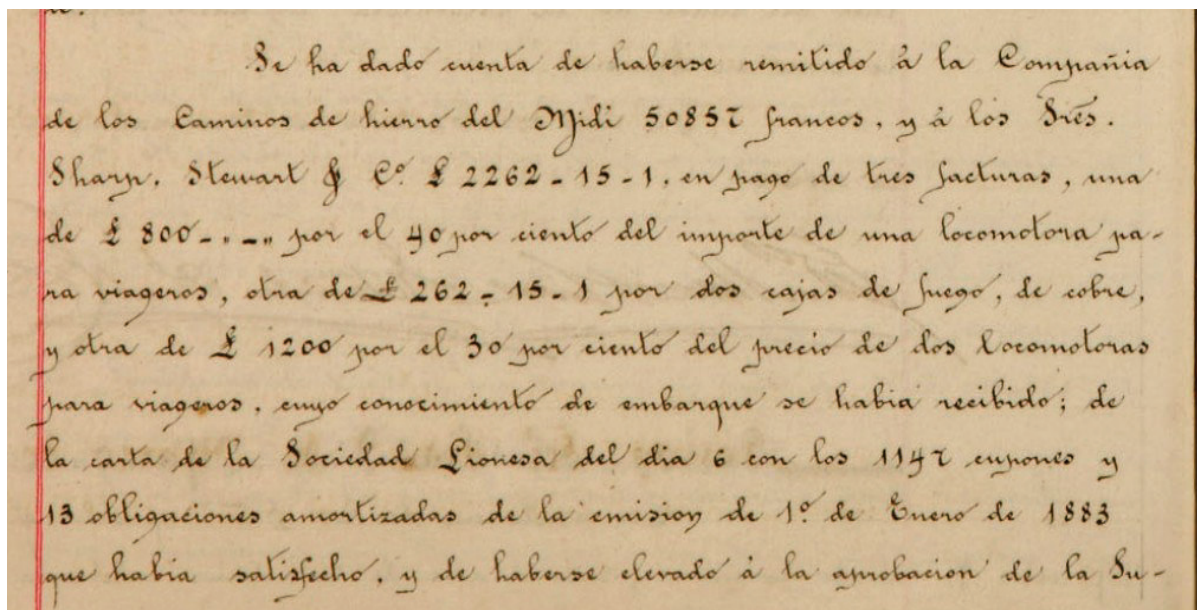 Se ha dado cuenta de haberse remitido á la Compañia
de los Caminos de hierro del Midi 50857 francos, y á los Sres.
Sharp, Stewart & Cº £ 2262-15-1, en pago de tres facturas, una
de £ 800-"-" por el 40 por ciento del importe de una locomotora pa-
ra viageros, otra de £ 262-15-1 por dos cajas de fuego, de cobre,
y otra de £ 1200 por el 30 por ciento del precio de dos locomotoras
para viageros, cuyo conocimiento de embarque se habia recibido; de
la carta de la Sociedad Lionesa del dia 6 con los 1147 cupones y
13 obligaciones amortizadas de la emision de 1º de Enero de 1883
que habia satisfecho, y de haberse elevado á la aprobacion de la Su-